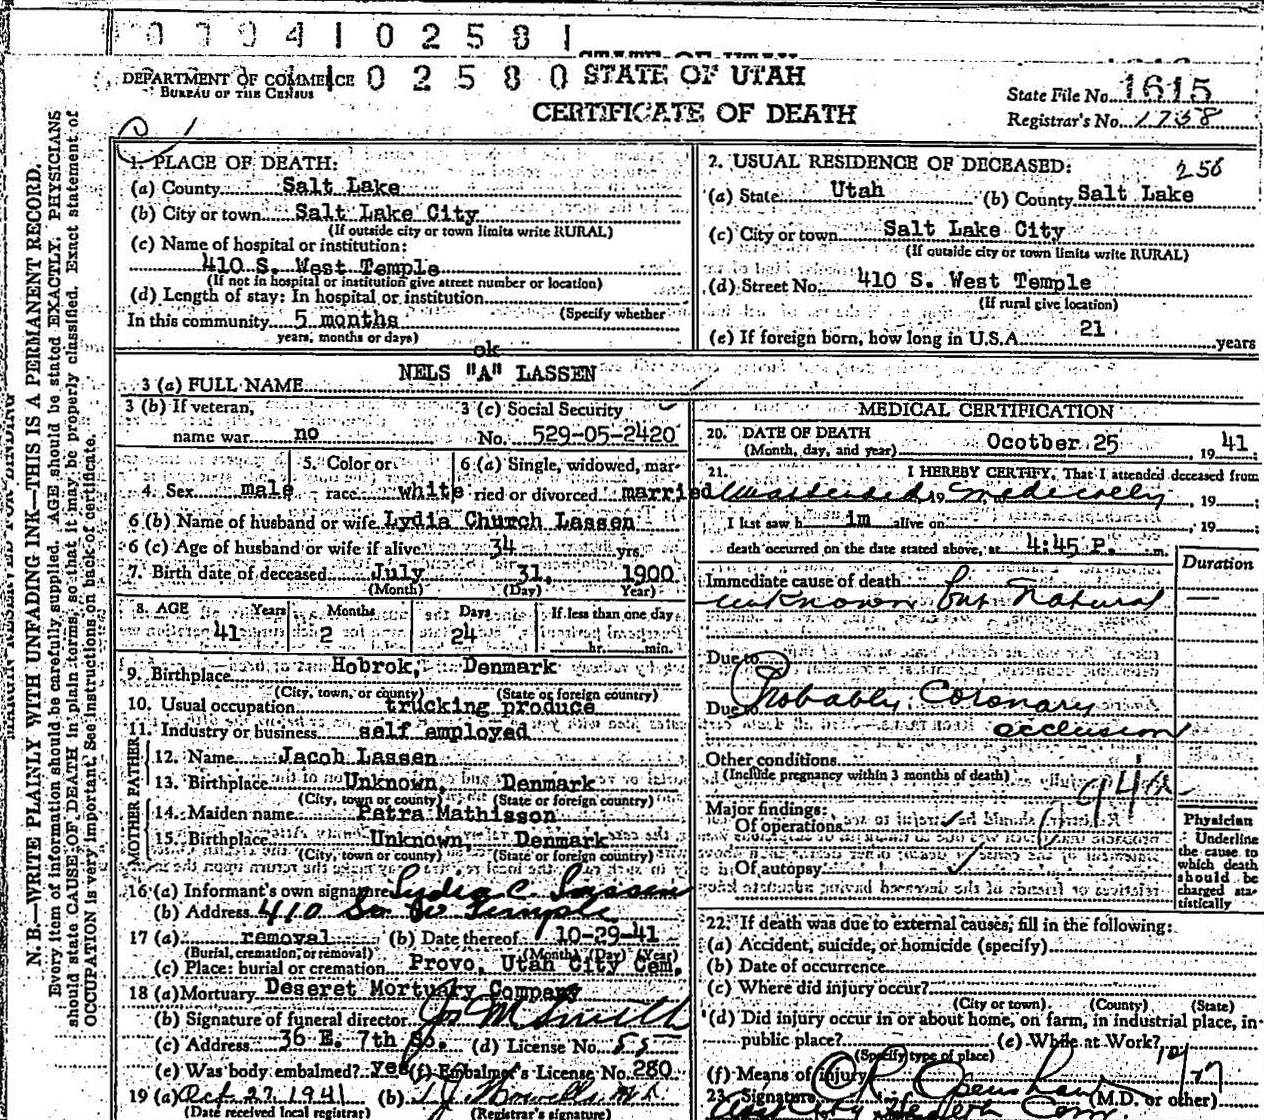 0 7 9 4 1 0 2 5 8 1
STATE OF UTAH
DEPARTMENT OF COMMERCE
BUREAU OF THE CENSUS
1 0 2 5 8 0
STATE OF UTAH
CERTIFICATE OF DEATH
State File No. 1615
Registrar's No. 1738
N. B.—WRITE PLAINLY WITH UNFADING INK—THIS IS A PERMANENT RECORD.
Every item of information should be carefully supplied. AGE should be stated EXACTLY. PHYSICIANS
should state CAUSE OF DEATH in plain terms, so that it may be properly classified. Exact statement of
OCCUPATION is very important. See instructions on back of certificate.
1. PLACE OF DEATH:
(a) County Salt Lake
(b) City or town Salt Lake City
(If outside city or town limits write RURAL)
(c) Name of hospital or institution:
410 S. West Temple
(If not in hospital or institution give street number or location)
(d) Length of stay: In hospital or institution
(Specify whether
In this community 5 months
years, months or days)
2. USUAL RESIDENCE OF DECEASED: 256
(a) State Utah (b) County Salt Lake
(c) City or town Salt Lake City
(If outside city or town limits write RURAL)
(d) Street No. 410 S. West Temple
(If rural give location)
(e) If foreign born, how long in U.S.A. 21 years
ok
3 (a) FULL NAME NELS "A" LASSEN
3 (b) If veteran,
name war no
3 (c) Social Security
No. 529-05-2420
4. Sex male
5. Color or
race white
6 (a) Single, widowed, mar-
ried or divorced married
6 (b) Name of husband or wife Lydia Church Lassen
6 (c) Age of husband or wife if alive 34 yrs.
7. Birth date of deceased July 31, 1900
(Month) (Day) Year)
8. AGE Years Months Days If less than one day
41 2 24 hr. min.
9. Birthplace Hobrok, Denmark
(City, town, or county) (State or foreign country)
10. Usual occupation trucking produce
11. Industry or business self employed
FATHER
12. Name Jacob Lassen
13. Birthplace Unknown, Denmark
(City, town or county) (State or foreign country)
MOTHER
14. Maiden name Petra Mathisson
15. Birthplace Unknown, Denmark
(City, town or county) (State or foreign country)
16 (a) Informant's own signature Lydia C. Lassen
(b) Address 410 So. W Temple
17 (a) removal (b) Date thereof 10-29-41
(Burial, cremation, or removal) (Month) (Day) (Year)
(c) Place: burial or cremation Provo, Utah City Cem.
18 (a) Mortuary Deseret Mortuary Company
(b) Signature of funeral director Jos M Smith
(c) Address 36 E. 7th So. (d) License No. 55
(e) Was body embalmed? yes (f) Embalmer's License No. 280
19 (a) Oct 27 1941 (b)
(Date received local registrar) (Registrar's signature)
MEDICAL CERTIFICATION
20. DATE OF DEATH
(Month, day, and year) Ocotber 25, 19 41
21. I HEREBY CERTIFY, That I attended deceased from
unattended, 19 medically, 19 ;
I last saw h im alive on , 19 ;
death occurred on the date stated above, at 4:45 P. m.
Duration
Immediate cause of death
unknown but natural —
Due to
Probably Coronary
Due to
occlusion
Other conditions
(Include pregnancy within 3 months of death)
94a
Major findings:
Of operations
Of autopsy
Physician
Underline
the cause to
which death
should be
charged sta-
tistically
22. If death was due to external causes, fill in the following:
(a) Accident, suicide, or homicide (specify)
(b) Date of occurrence
(c) Where did injury occur?
(City or town) (County) (State)
(d) Did injury occur in or about home, on farm, in industrial place, in
public place? (e) While at Work?
(Specify type of place)
(f) Means of injury
23. Signature (M.D. or other)